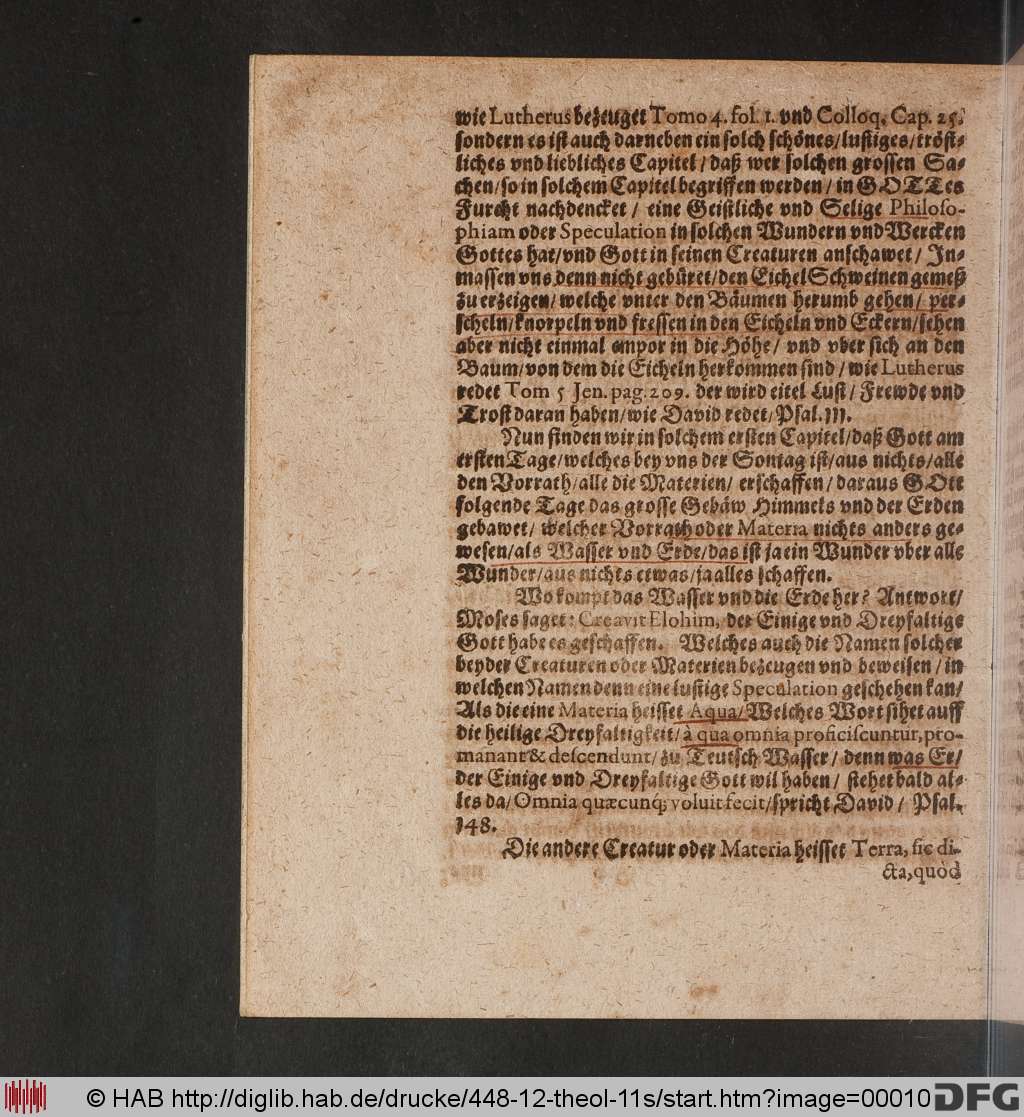 wie Lutherus bezeuget Tomo 4. fol. 1. vnd Colloq. Cap. 25.
sondern es ist auch darneben ein solch schönes/lustiges/tröst-
liches vnd liebliches Capitel/daß wer solchen grossen Sa-
chen/so in solchem Capitel begriffen werden/in GOTTes
Furcht nachdencket/ eine Geistliche vnd Selige Philoso-
phiam oder Speculation in solchen Wundern vnd Wercken
Gottes hat/vnd Gott in seinen Creaturen anschawet/ In-
massen vns denn nicht gebüret/den Eichel Schweinen gemeß
zu erzeigen/welche vnter den Bäumen herumb gehen/ per-
scheln/knorpeln vnd fressen in den Eicheln vnd Eckern/sehen
aber nicht einmal empor in die Höhe/ vnd vber sich an den
Baum/von dem die Eicheln herkommen sind/wie Lutherus
redet Tom 5 Jen. pag. 209. der wird eitel Lust/Frewde vnd
Trost daran haben/wie David redet/Psal. 111.
Nun finden wir in solchem ersten Capitel/daß Gott am
ersten Tage/welches bey vns der Sontag ist/aus nichts/alle
den Vorrath/alle die Materien/ erschaffen/daraus GOtt
folgende Tage das grosse Gebäw Himmels vnd der Erden
gebawet/ welcher Vorrath oder Materia nichts anders ge-
wesen/als Wasser vnd Erde/das ist ja ein Wunder vber alle
Wunder/aus nichts etwas/ja alles schaffen.
Wo kompt das Wasser vnd die Erde her? Antwort/
Moses saget: Creavit Elohim, der Einige vnd Dreyfaltige
Gott habe es geschaffen. Welches auch die Namen solcher
beyder Creaturen oder Materien bezeugen vnd beweisen/in
welchen Namen denn eine lustige Speculation geschehen kan/
Als die eine Materia heisset Aqua/Welches Wort sihet auff
die heilige Dreyfaltigkeit/à qua omnia proficiscuntur, pro-
manant & descendunt/zu Teutsch Wasser/denn was Er/
der Einige vnd Dreyfaltige Gott wil haben/ stehet bald al-
les da/Omnia quæcunq; voluit fecit/spricht David/ Psal.
148.
Die andere Creatur oder Materia heisset Terra, sic di-
cta, quòd
© HAB http://diglib.hab.de/drucke/448-12-theol-11s/start.htm?image=00010 DFG